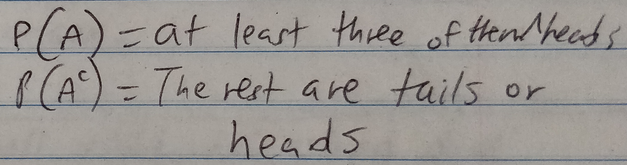 P(A) = at least three of them heads
P(Aᶜ) = The rest are tails or
heads